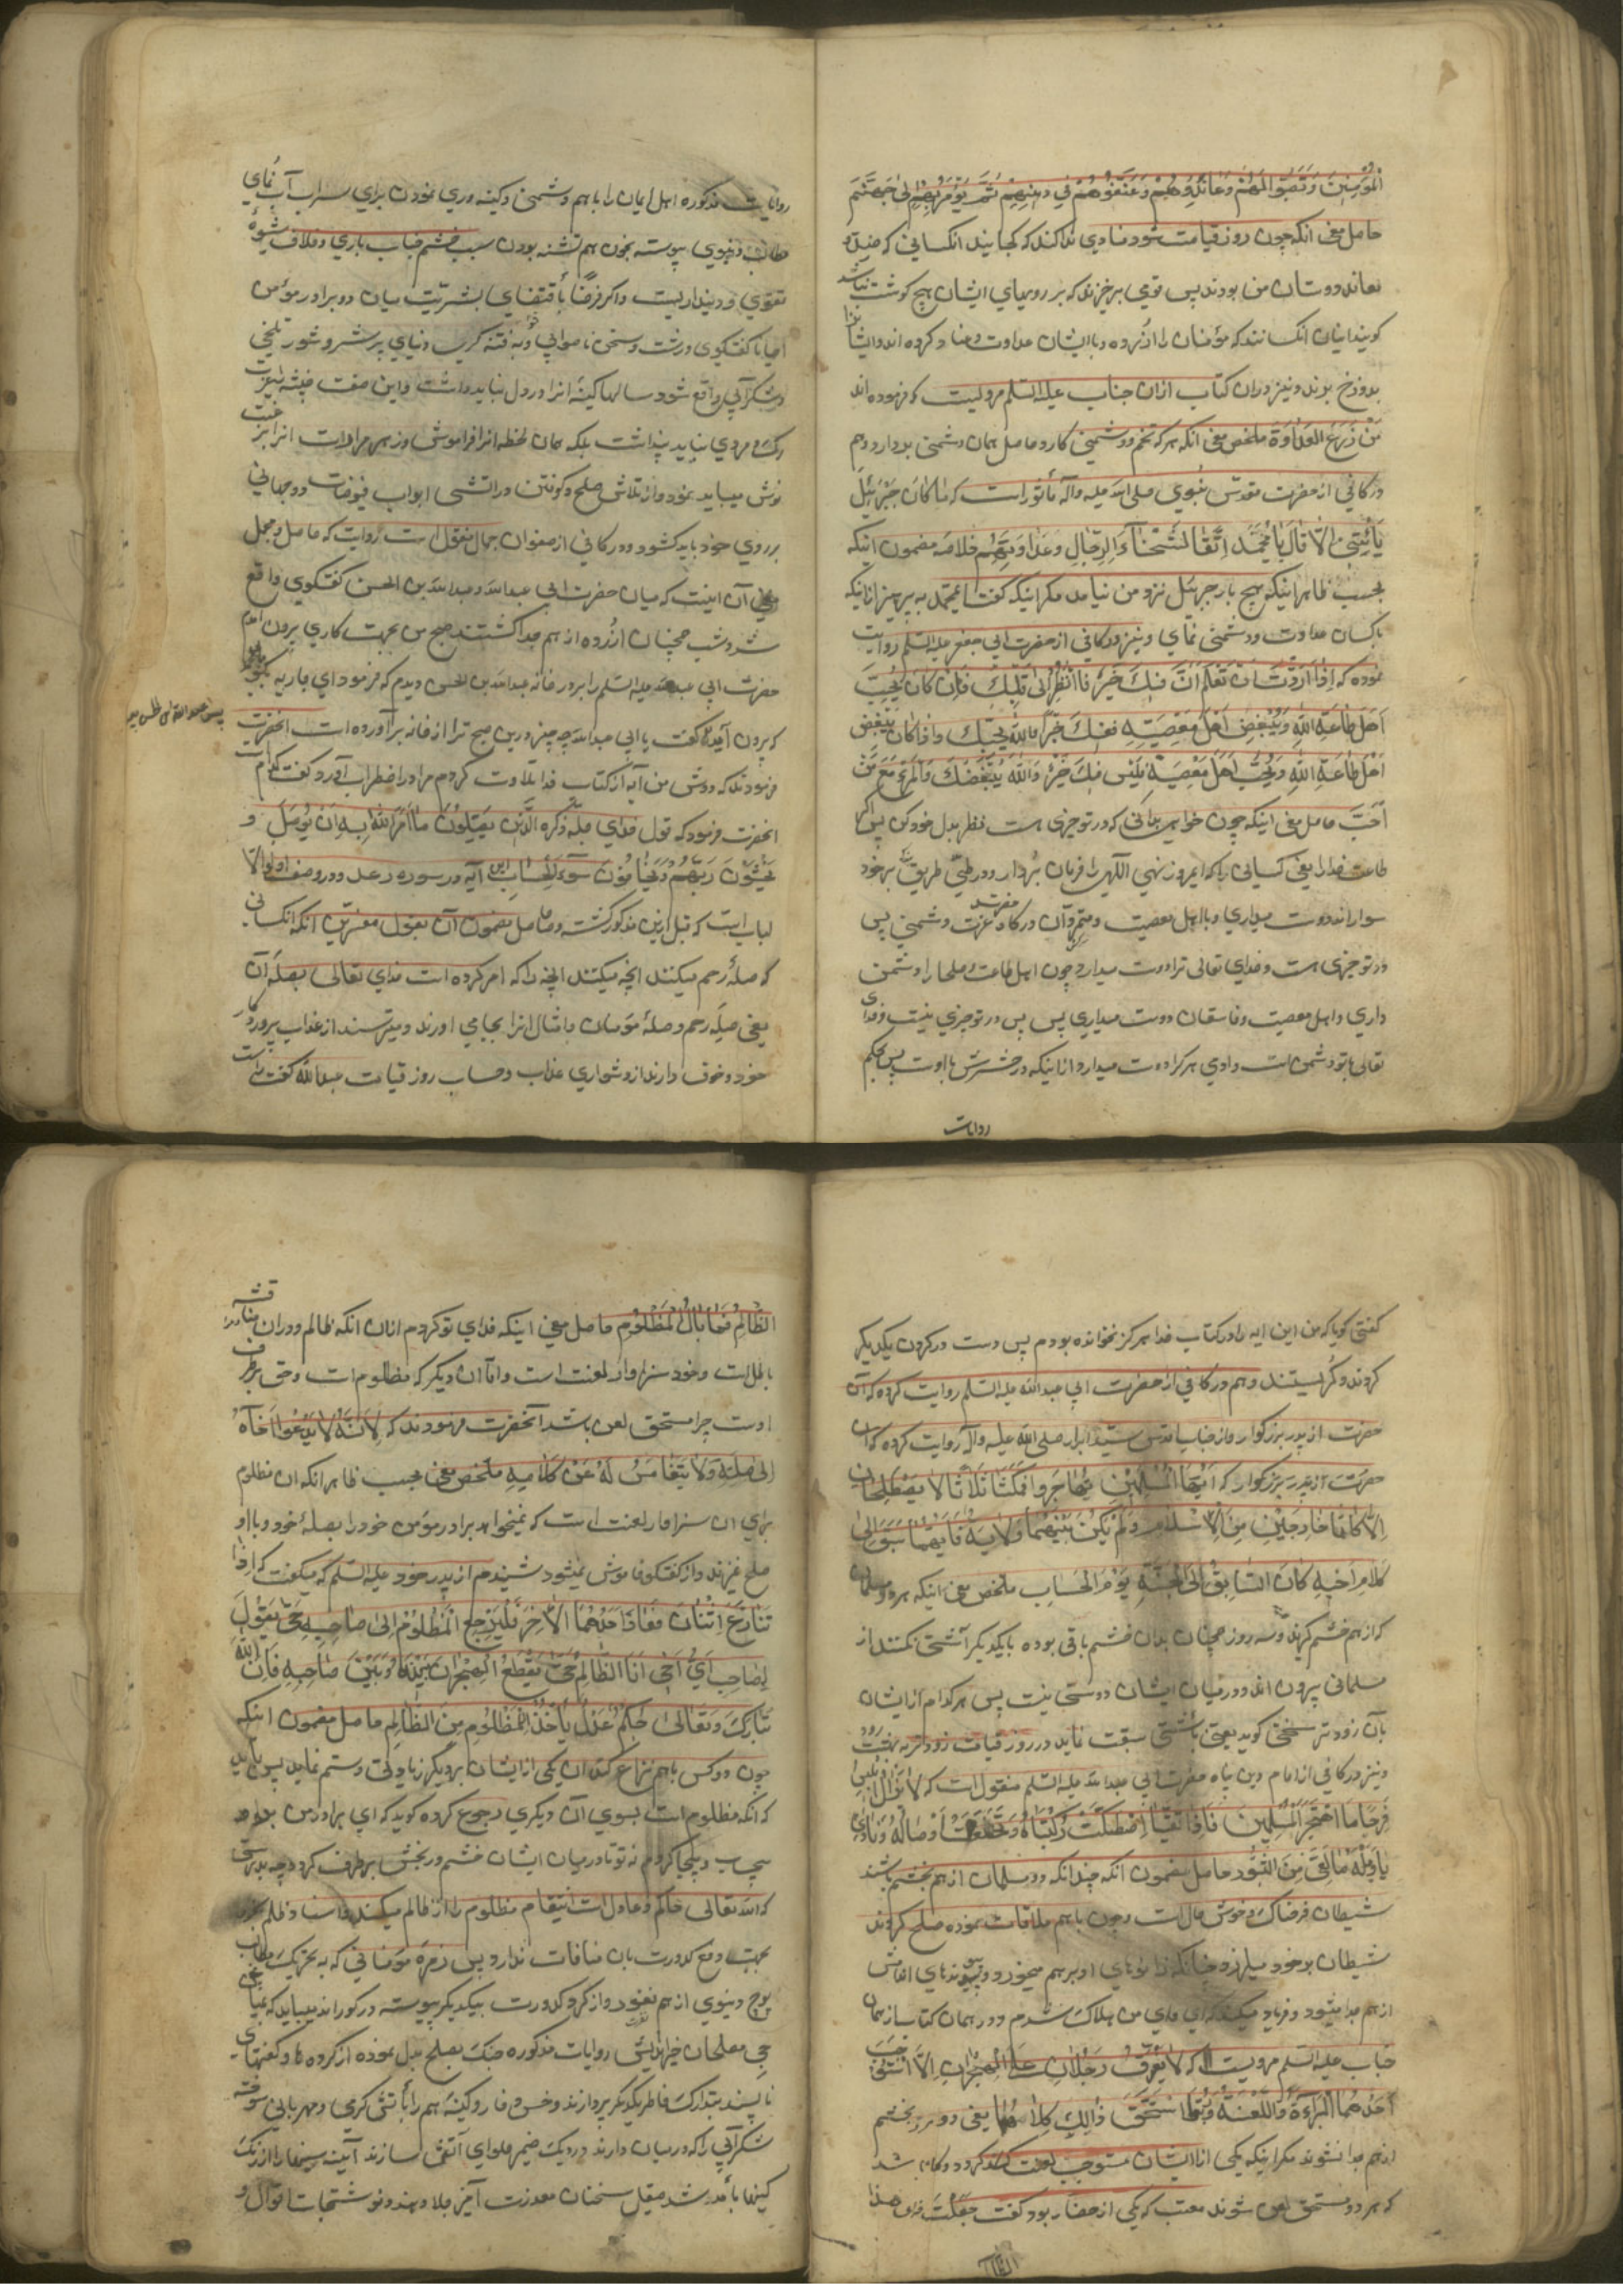 المؤمنین وَنَصَبُوا لَهُمْ وَعَانَدُوهُمْ وَعَنَّفُوهُمْ فِي دِینِهِمْ ثُمَّ یُؤْمَرُ بِهِمْ اِلیٰ جَهَنَّمَ
حاصل معنی انکه چون روز قیامت شود منادی ندا کند که کجایند انکسانی که
معاند دوستان من بودند پس قومی برخیزند که بر رویهای ایشان هیچ گوشت نباشد
گویند اینان انکسانند که مؤمنان را آزرده و با ایشان عداوت و عناد کرده اند
بدوزخ برند و نیز در ان کتاب ازان جناب علیه السّلم مرویست که فرموده اند
مَنْ زَرَعَ العَدَاوَةَ ملخص معنی انکه هر که تخم دشمنی کارد حاصل همان دشمنی بردارد و هم
در کافی از حضرت مقدس نبوی صلی الله علیه وآله مأثور است که مٰا کٰانَ جَبْرَئِیلُ
یَأْتِیْنِیْ اِلّا قٰالَ یٰا مُحَمَّدُ اِتَّقِ شَحْنٰآءَ الرِّجٰالِ وَعَدٰاوَتَهُمْ خلاصه مضمون اینکه
بحسب ظاهر اینکه هیچ بار جبرئیل نزد من نیامد مگر اینکه گفت ای محمد بپرهیز از اینکه
با کسان عداوت و دشمنی نمای و نیز در کافی از حضرت ابی جعفر علیه السّلم روایت
نموده که اِذٰا اَرَدْتَ اَنْ تَعْلَمَ اَنَّ فِیكَ خَیْرًا فَانْظُرْ اِلیٰ قَلْبِكَ فَاِنْ کٰانَ یُحِبُّ
اَهْلَ طٰاعَةِ اللّٰهِ وَیُبْغِضُ اَهْلَ مَعْصِیَتِهِ فَفِیكَ خَیْرٌ وَاللّٰهُ یُحِبُّكَ وَاِذٰا کٰانَ یُبْغِضُ
اَهْلَ طٰاعَةِ اللّٰهِ وَیُحِبُّ اَهْلَ مَعْصِیَتِهِ فَلَیْسَ فِیكَ خَیْرٌ وَاللّٰهُ یُبْغِضُكَ وَالْمَرْءُ مَعَ مَنْ
اَحَبَّ حاصل معنی اینکه چون خواهی بدانی که در تو خیری هست نظر بدل خود کن پس اگر
طاعت خدا را یعنی کسانی را که امر و نهی الهی را فرمان بردار و در طی طریق
سوار اند دوست میداری و با اهل معصیت دشمنی پس
در تو خیری هست و خدای تعالی ترا دوست میدارد و چون اهل طاعت و صلحا را دشمن
داری و اهل معصیت و فاسقان دوست میداری پس در تو خیری نیست و خدای
تعالی با تو دشمن است و ادمی هر کرا دوست میدارد در حشرش با اوست پس بحکم
روایات
روایات مذکوره اهل ایمان را با هم دشمنی و کینه وری نمودن برای سراب آب نمای
مطالب دنیوی پیوسته بخون هم تشنه بودن سبب خشم جناب باری و خلاف شیوهٔ
تقوی و دینداریست و اگر فرضًا باقتضای بشریّت میان دو برادر مؤمن
احیانا گفتگوی درشت و سخن ناصوابی
واقع شود سالها کینهٔ انرا در دل نباید داشت و این صفت خبیثه را
مردی نباید پنداشت بلکه همان لحظه انرا فراموش
نوش میباید نمود و از تلاش صلح و کوفتن در اشتی ابواب فیوضات دو جهانی
بر روی خود باید گشود و در کافی از صفوان جمال منقول است روایت که حاصل مجمل
آن اینست که میان حضرت ابی عبدالله و عبدالله بن الحسن گفتگوی واقع
شد و شب همچنان ازرده از هم جدا گشتند صبح من بجهت کاری بیرون امدم
حضرت ابی عبدالله علیه السّلم را بر در خانه عبدالله بن الحسن دیدم که فرمود ای جاریه بگو
که بیرون آمد و گفت یا ابی عبدالله چه چیز درین صبح ترا از خانه برآورده است انحضرت
فرمودند که دوش من آیهٔ از کتاب خدا تلاوت کردم مرا در اضطراب آورد گفت کدام است
انحضرت فرمود که قول خدای جلّ ذکره الَّذِینَ یَصِلُونَ مٰا اَمَرَ اللّٰهُ بِهِ اَنْ یُوصَلَ وَ
یَخْشَوْنَ رَبَّهُمْ وَیَخٰافُونَ سُوٓءَ الْحِسٰابِ این آیه در سوره رعد و در وصف اولوا الا
لباب است که قبل ازین مذکور گشته و حاصل مضمون آن بقول مفسرین انکه انکسانی
که صلهٔ رحم میکنند انچه امر کرده است خدای تعالی بصلهٔ آن
یعنی صلهٔ رحم و صلهٔ مؤمنان و امثال انرا بجا می اورند و میترسند از عذاب پروردگار
خود و خوف دارند از دشواری عذاب و حساب روز قیامت عبدالله گفت راست
گفتی گویا که من این ایه را در کتاب خدا هرگز نخوانده بودم پس دست در گردن یکدیگر
کردند و گریستند و هم در کافی از حضرت ابی عبدالله علیه السّلم روایت کرده که آن
حضرت از پدر بزرگوار و از جناب اقدس سیّد ابرار صلی الله علیه وآله روایت کرده که
حضرت از پدر بزرگوار که اَیُّمٰا مُسْلِمَیْنِ تَهٰاجَرٰا فَمَکَثٰا ثَلٰاثًا لٰا یَصْطَلِحٰانِ
اِلّٰا کٰانٰا خٰارِجَیْنِ مِنَ الْاِسْلٰامِ وَلَمْ یَکُنْ بَیْنَهُمٰا وَلٰایَةٌ فَاَیُّهُمٰا سَبَقَ اِلیٰ
کَلٰامِ اَخِیهِ کٰانَ السّٰابِقَ اِلَی الْجَنَّةِ یَوْمَ الْحِسٰابِ ملخص معنی اینکه هر دو مسلمان
که از هم خشم گیرند و سه روز همچنان بدان خشم باقی بوده با یکدیگر آشتی نکنند از
مسلمانی بیرون اند و در میان ایشان دوستی نیست پس هر کدام از ایشان
بآن زودتر سخنی گوید یعنی باشتی سبقت نماید در روز قیامت زودتر به بهشت رود
و نیز در کافی از امام دین پناه حضرت ابی عبدالله علیه السّلم منقول است که لٰا یَزٰالُ اِبْلِیسُ
فَرِحًا مَا اهْتَجَرَ الْمُسْلِمٰانِ فَاِذَا الْتَقَیٰا اصْطَکَّتْ رُکْبَتٰاهُ وَتَخَلَّعَتْ اَوْصٰالُهُ وَنٰادیٰ
یٰا وَیْلَهُ مٰا لَقِیَ مِنَ الثُّبُورِ حاصل مضمون انکه چندانکه دو مسلمان از هم بخشم باشند
شیطان فرحناک و خوش حال است و چون با هم ملاقات نموده صلح کردند
شیطان بر خود میلرزد چنانکه زانوهای او بر هم میخورد و پیوندهای اعضایش
از هم جدا میشود و فریاد میکند که ای وای من هلاک شدم و در همان کتاب از همان
جناب علیه السّلم مرویست که لٰا یَفْتَرِقُ رَجُلٰانِ عَلَی الْهِجْرٰانِ اِلَّا اسْتَوْجَبَ
اَحَدُهُمَا الْبَرٰاءَةَ وَاللَّعْنَةَ وَرُبَّمَا اسْتَحَقَّ ذٰلِكَ کِلٰاهُمٰا یعنی دو مرد بخشم
از هم جدا نشوند مگر اینکه یکی از ایشان مستوجب لعنت گردد و گاه باشد
که هر دو مستحق لعن شوند معتب که یکی از حضار بود گفت جُعِلْتُ فداك هذا
الظالم
الظّٰالِمُ فَمٰا بٰالُ الْمَظْلُومِ حاصل معنی اینکه فدای تو گردم انان انکه ظالم و در ان مناقشه
باطل است و خود سزاوار لعنت است و اما ان دیگر که مظلوم است و حق بطرف
اوست چرا مستحق لعن باشد آنحضرت فرمودند که لِاَنَّهُ لٰا یَدْعُوا اَخٰاهُ
اِلیٰ صِلَتِهِ وَلٰا یَتَغٰامَسُ لَهُ عَنْ کَلٰامِهِ ملخص معنی بحسب ظاهر انکه ان مظلوم
برای ان سزاوار لعنت است که نمیخواهد برادر مؤمن خود را بصلهٔ خود و با او
صلح نمیزند و از گفتگو خاموش نمیشود شنیدم از پدر خود علیه السّلم که میگفت که اِذٰا
تَنٰازَعَ اثْنٰانِ فَعٰازَّ اَحَدُهُمَا الْاٰخَرَ فَلْیَرْجِعِ الْمَظْلُومُ اِلیٰ صٰاحِبِهِ حَتّیٰ یَقُولَ
لِصٰاحِبِهِ اَیْ اَخِی اَنَا الظّٰالِمُ حَتّیٰ یَقْطَعَ الْهِجْرٰانَ بَیْنَهُ وَبَیْنَ صٰاحِبِهِ فَاِنَّ اللّٰهَ
تَبٰارَكَ وَتَعٰالیٰ حَکَمٌ عَدْلٌ یَأْخُذُ لِلْمَظْلُومِ مِنَ الظّٰالِمِ حاصل مضمون اینکه
چون دو کس باهم نزاع کنند ان یکی از ایشان بر دیگر زیادتی و ستم نماید پس باید
که انکه مظلوم است بسوی آن دیگری رجوع کرده گوید که ای برادر من
کردم نه تو تا در میان ایشان خشم و رنجش برطرف گردد چه بدرستی
که الله تعالی حاکم و عادل است انتقام مظلوم را از ظالم میکند
بجهت دفع کدورت بان منافات ندارد پس زمرهٔ مؤمنانی که به تحریک مطالب
پوچ دنیوی از هم نفور و از گرد کدورت بیکدیگر پیوسته در کور اند میباید که
مصلحان خیراندیش روایات مذکوره جنگ بصلح بدل نموده از کرده ها و گفتهای
ناپسند بتدارک خاطر یکدیگر پردازند و خس و خار کینهٔ هم را بآتش گرمی و مهربانی سوخته
شکرآبی را که در میان دارند در دیگ ضمیر حلوای آشتی سازند آیینه سینها را از زنگ
کینها بامداد صیقل سخنان معذرت آمیز جلا دهند و نوشتجات اقوال و